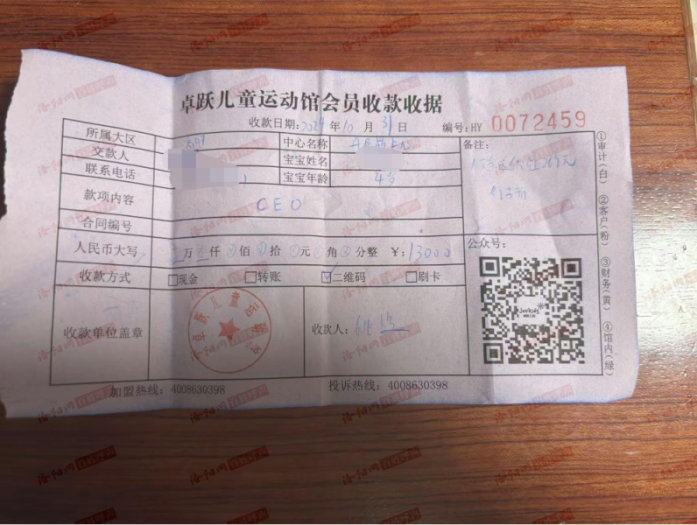 卓跃儿童运动馆会员收款收据
收款日期: 2021年10月31日 编号:HY 0072459
所属大区 中心名称 备注:
交款人 宝宝姓名
联系电话 宝宝年龄 4岁
款项内容 CEO
合同编号
人民币大写 万 仟 佰 拾 元 角 分整 ¥: 13000 公众号:
收款方式 □现金 □转账 ☑二维码 □刷卡
收款单位盖章 收款人:
加盟热线: 4008630398 投诉热线: 4008630398
①审计(白) ②客户(粉) ③财务(黄) ④馆内(绿)
洛阳网 百姓呼声